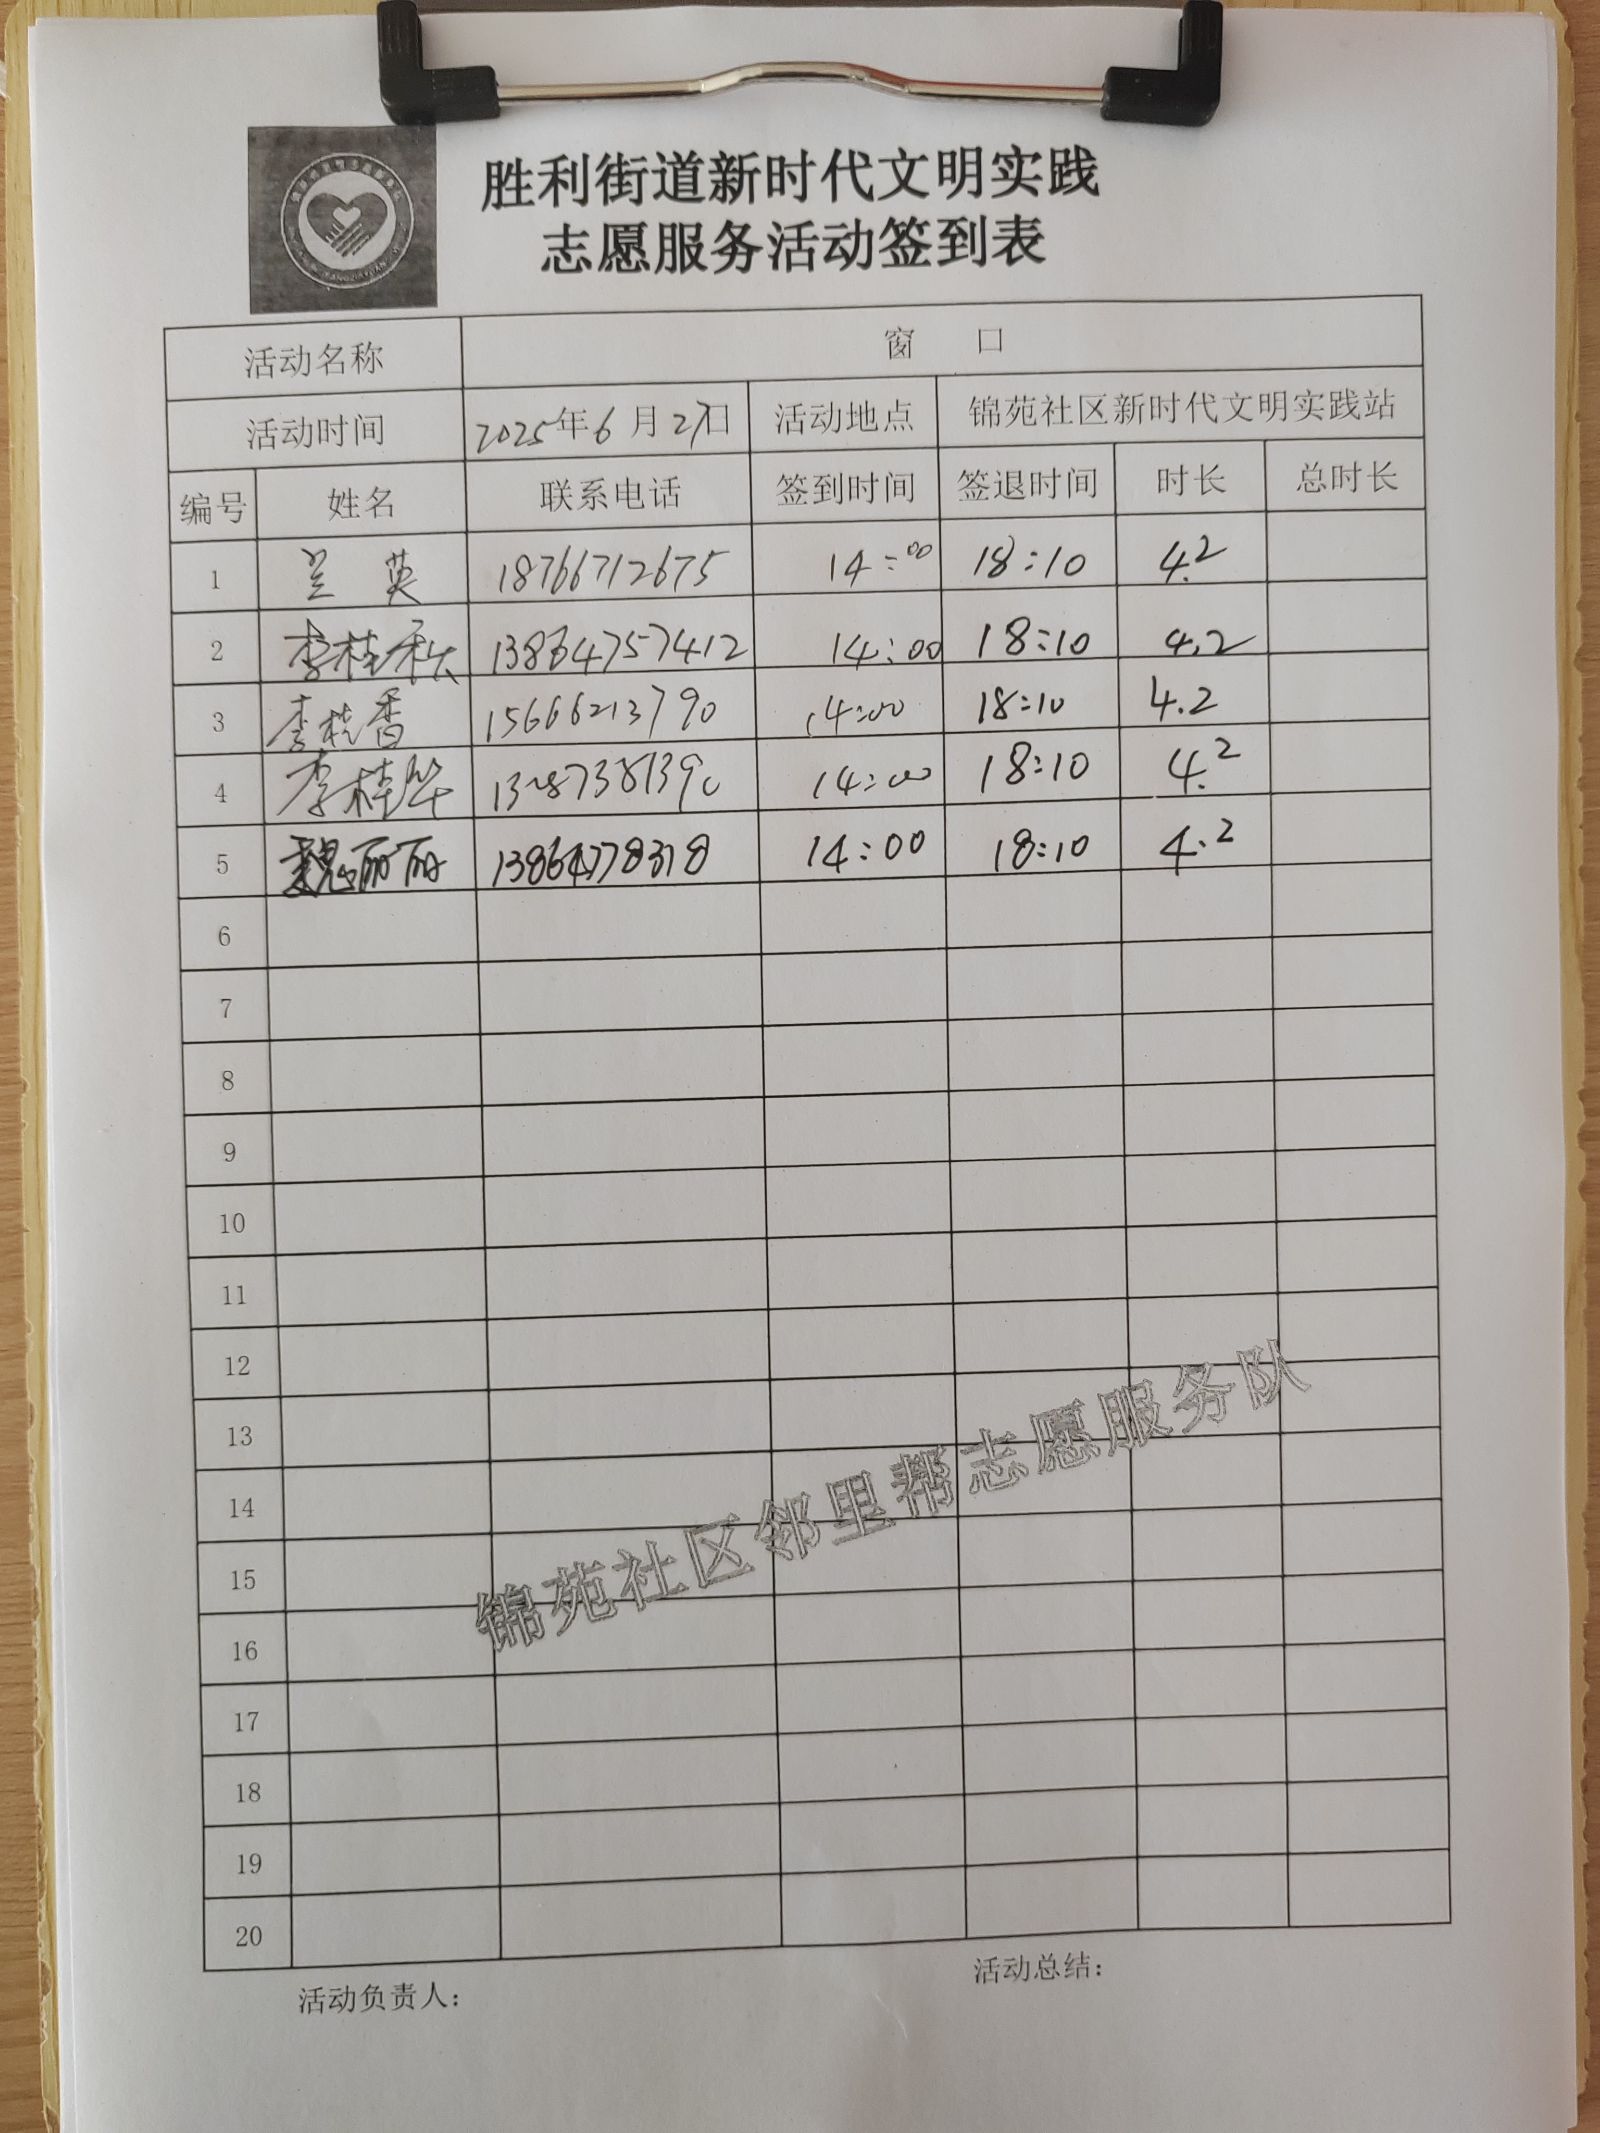 胜利街道新时代文明实践
志愿服务活动签到表
活动名称 窗 口
活动时间 2025年6月27日 活动地点 锦苑社区新时代文明实践站
编号 姓名 联系电话 签到时间 签退时间 时长 总时长
1 兰英 18766712675 14:00 18:10 4.2
2 李桂秋 13864757412 14:00 18:10 4.2
3 李桂香 15666213790 14:00 18:10 4.2
4 李桂华 14:00 18:10 4.2
5 魏丽丽 14:00 18:10 4.2
6
7
8
9
10
11
12
13
14
15
16
17
18
19
20
锦苑社区邻里帮志愿服务队
活动负责人： 活动总结：